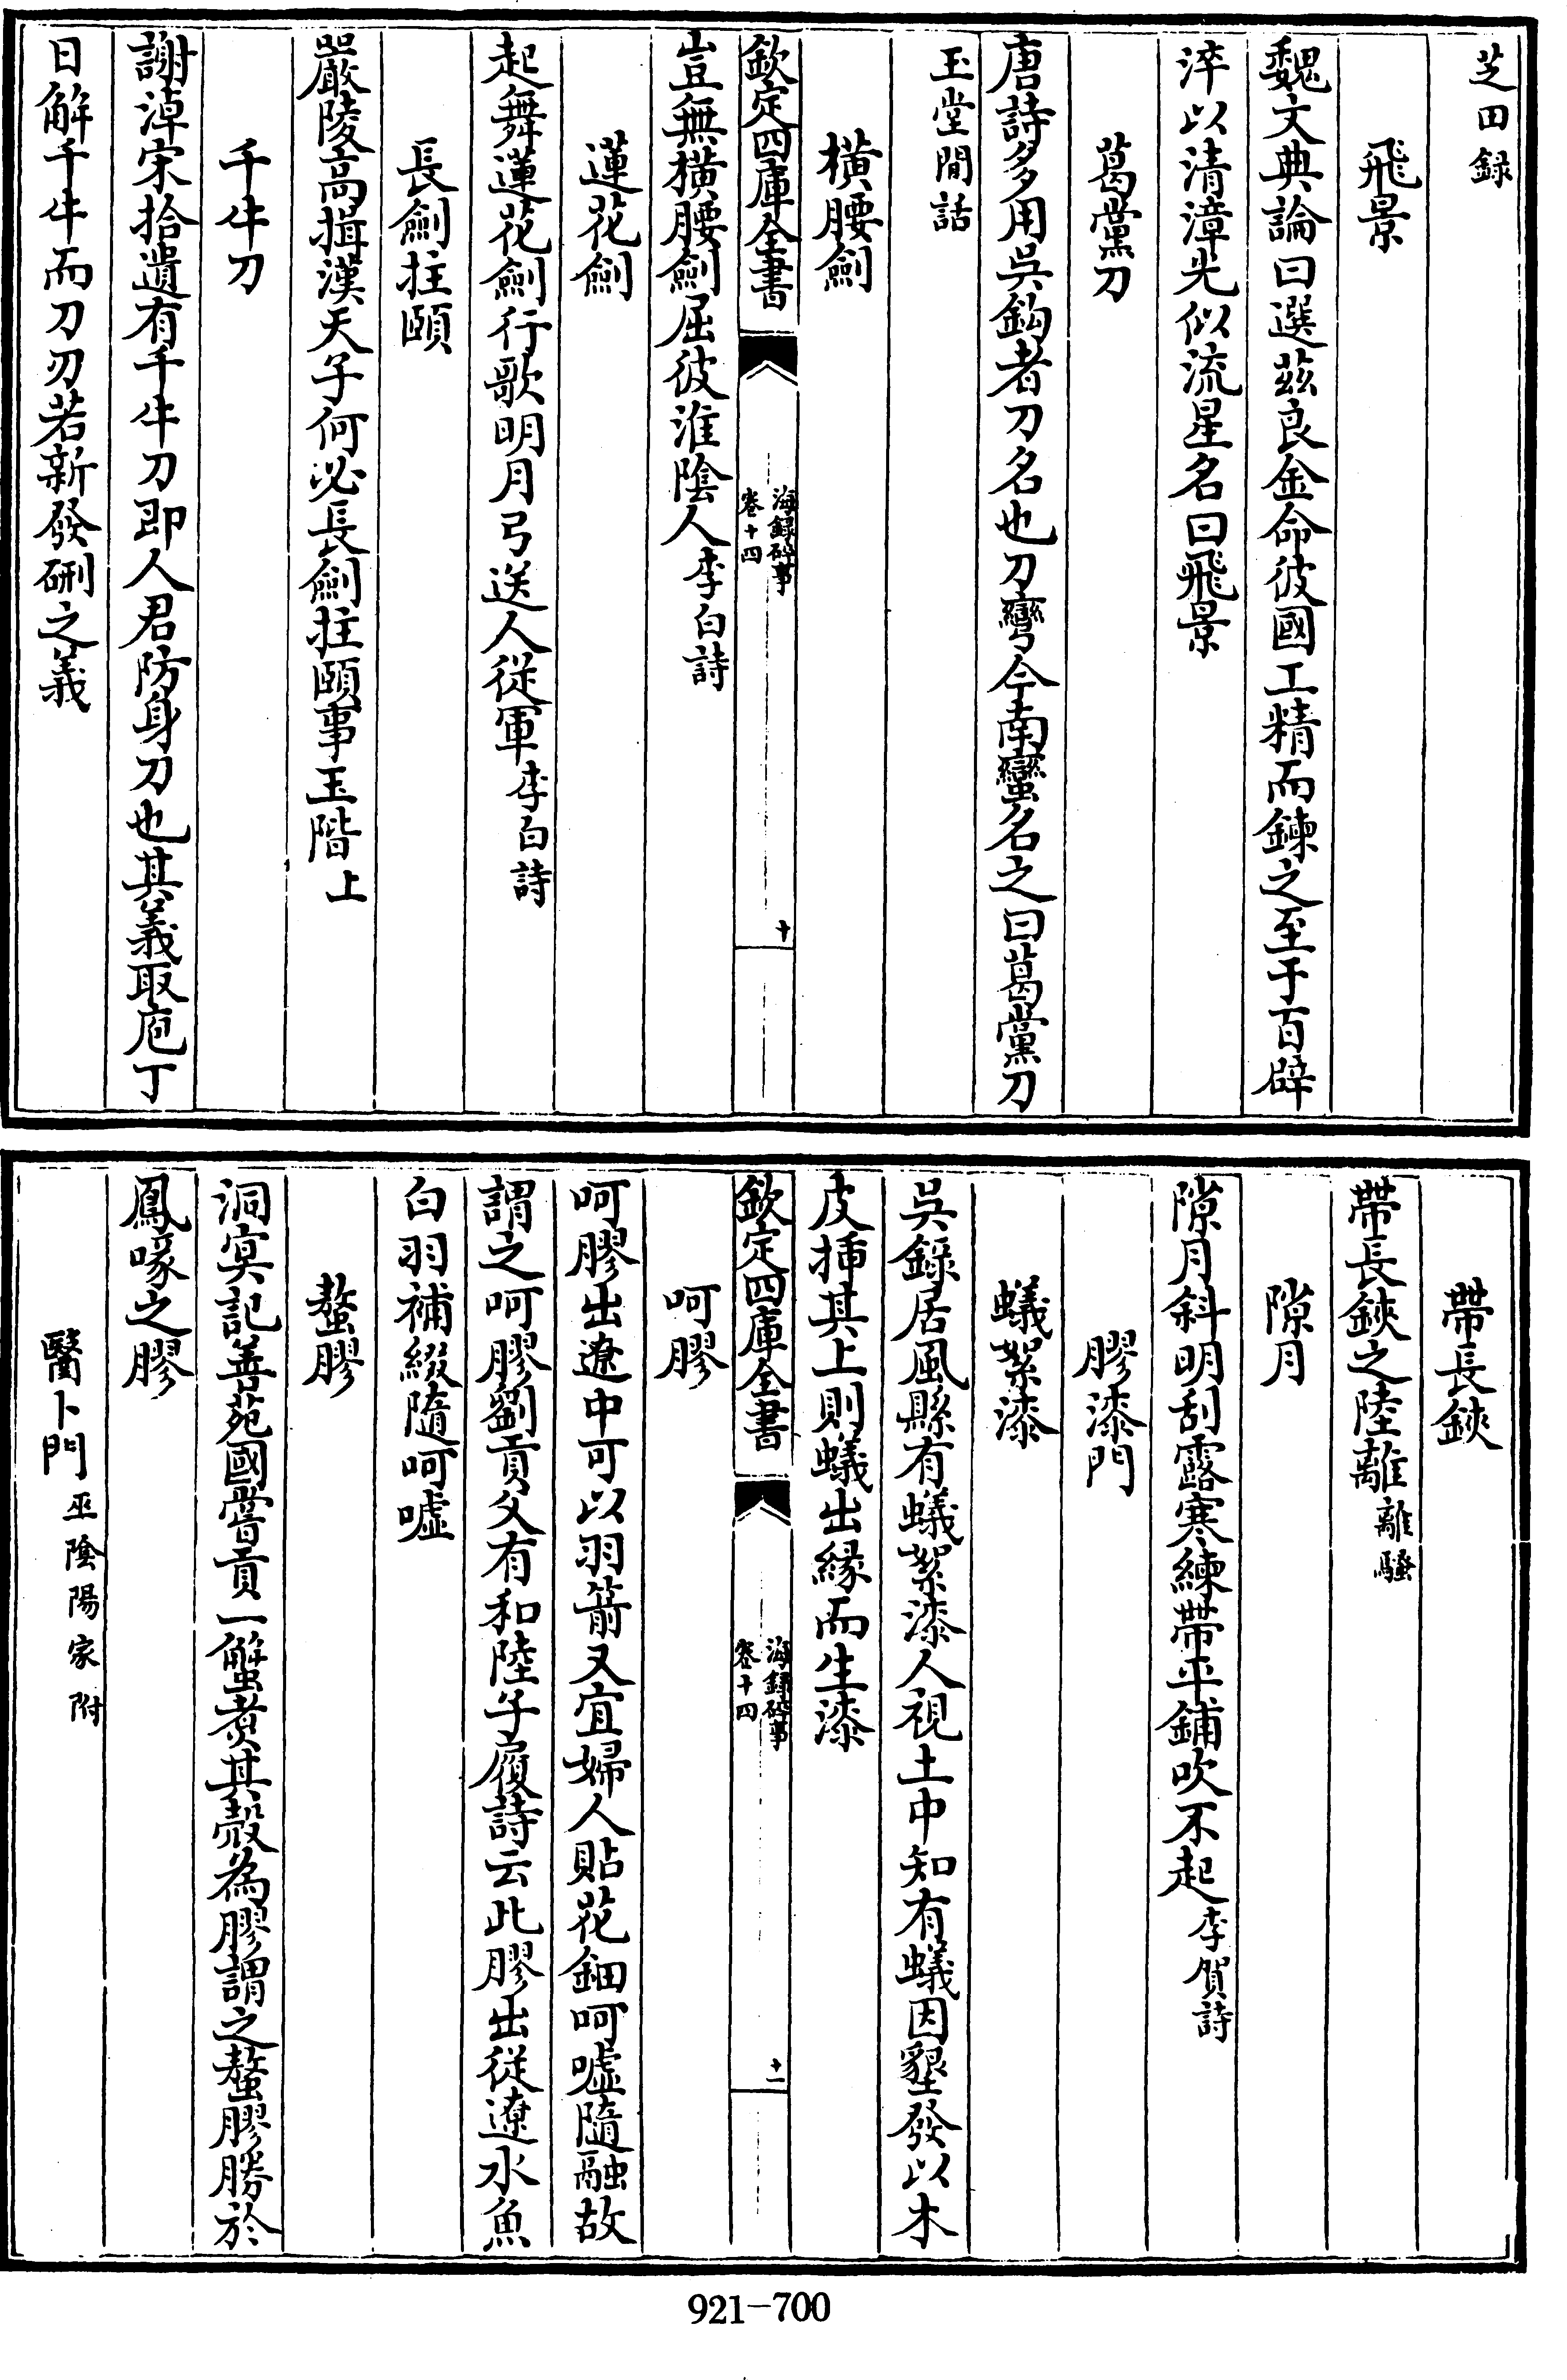 芝田録
飛景
魏文典論曰選茲良金命彼國工精而鍊之至于百辟
淬以清漳光似流星名曰飛景
葛黨刀
唐詩多用吳鈎者刀名也刀彎今南蠻名之曰葛黨刀
玉堂閒話
橫腰劍
欽定四庫全書
海録碎事
卷十四
十
豈無橫腰劍屈彼淮陰人李白詩
蓮花劍
起舞蓮花劍行歌明月弓送人從軍李白詩
長劍拄頤
嚴陵高揖漢天子何必長劍拄頤事玉階上
千牛刀
謝淖宋拾遺有千牛刀即人君防身刀也其義取庖丁
日解千牛而刀刃若新發硎之義
帶長鋏
帶長鋏之陸離離騷
隙月
隙月斜明刮露寒練帶平鋪吹不起李賀詩
膠漆門
蟻絮漆
吳錄居風縣有蟻絮漆人視土中知有蟻因墾發以木
皮揷其上則蟻出緣而生漆
欽定四庫全書
海録碎事
卷十四
十一
呵膠
呵膠出遼中可以羽箭又宜婦人貼花鈿呵噓隨融故
謂之呵膠劉貢父有和陸子履詩云此膠出從遼水魚
白羽補綴隨呵噓
螯膠
洞冥記善苑國嘗貢一蟹煑其殼為膠謂之螯膠勝於
鳳喙之膠
醫卜門巫陰陽家附
921-700